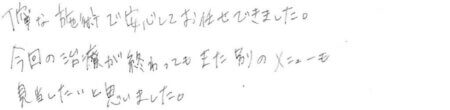 丁寧な施術で安心してお任せできました。
今回の治療が終わってもまた別のメニューも
見当したいと思いました。